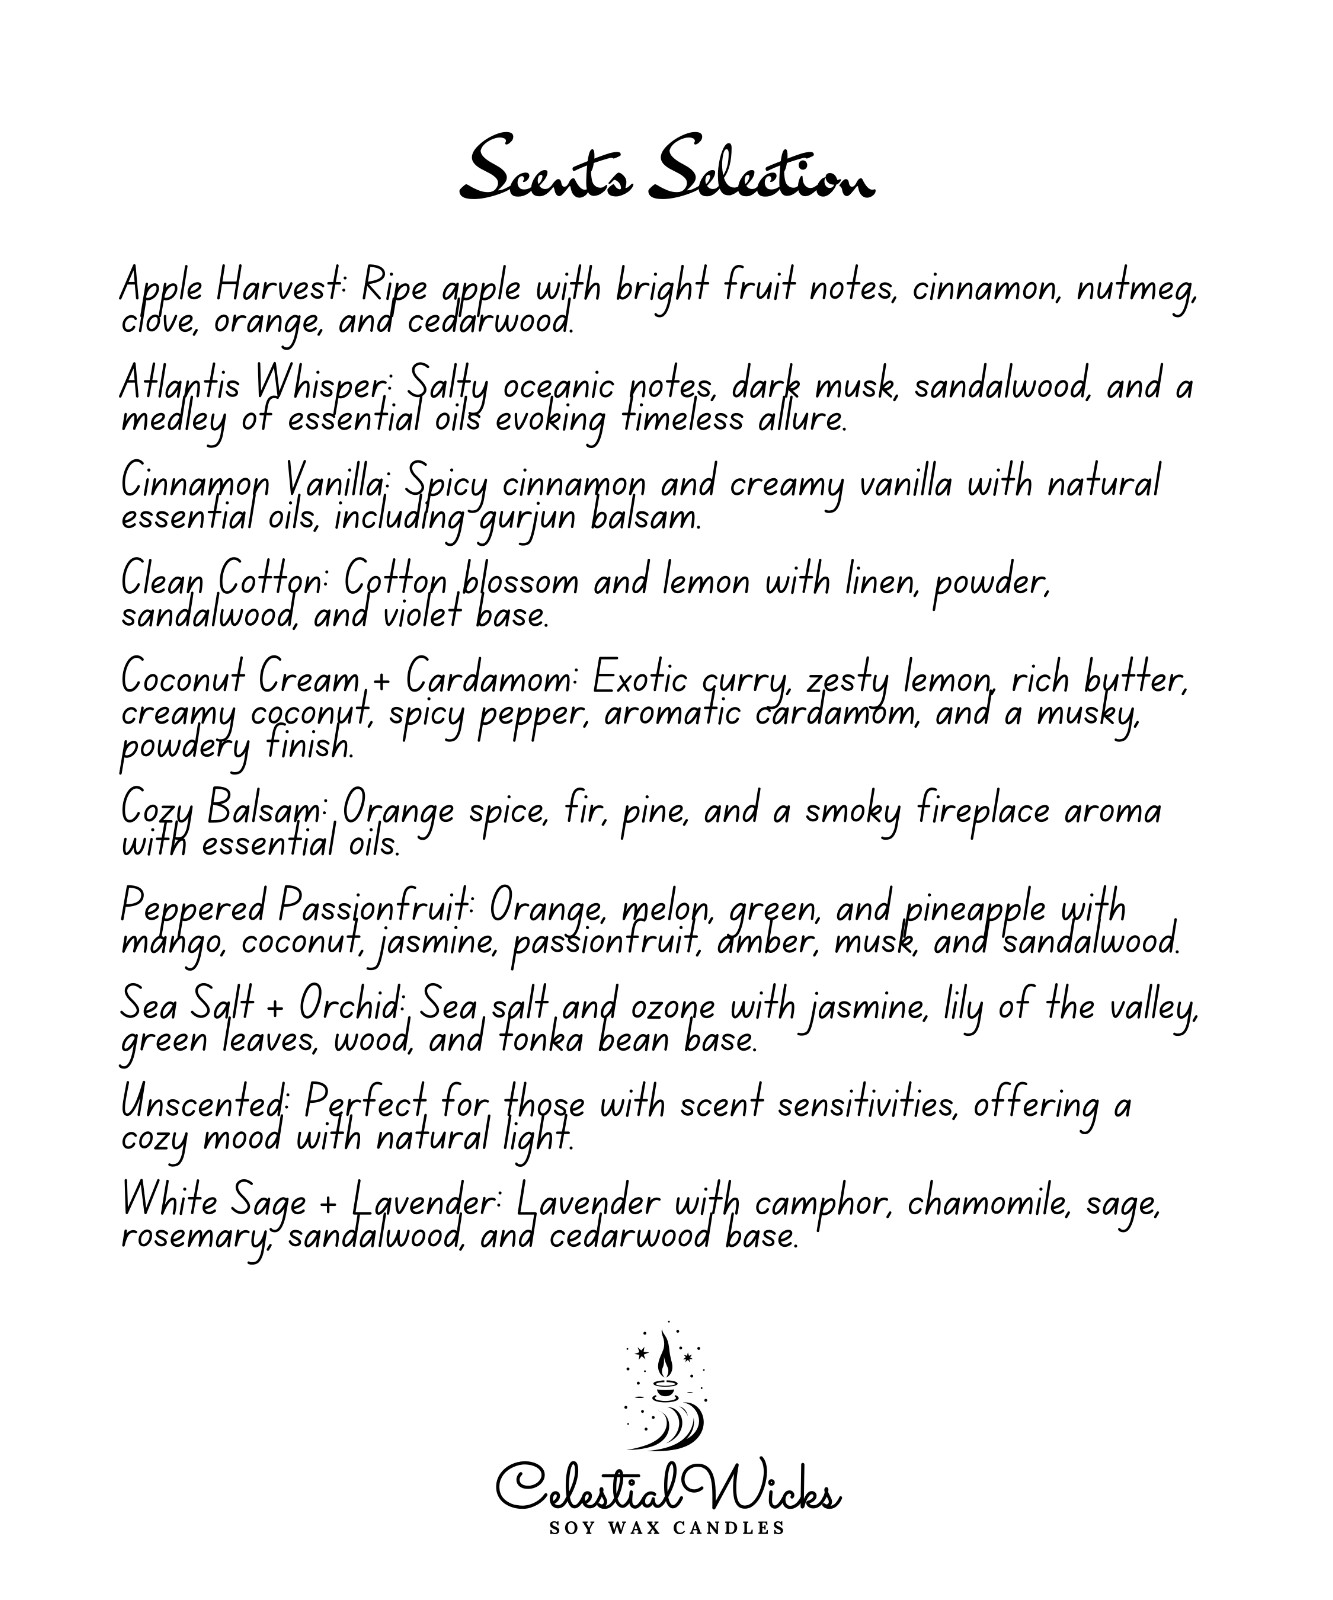 Scents Selection
Apple Harvest: Ripe apple with bright fruit notes, cinnamon, nutmeg,
clove, orange, and cedarwood.
Atlantis Whisper: Salty oceanic notes, dark musk, sandalwood, and a
medley of essential oils evoking timeless allure.
Cinnamon Vanilla: Spicy cinnamon and creamy vanilla with natural
essential oils, including gurjun balsam.
Clean Cotton: Cotton blossom and lemon with linen, powder,
sandalwood, and violet base.
Coconut Cream + Cardamom: Exotic curry, zesty lemon, rich butter,
creamy coconut, spicy pepper, aromatic cardamom, and a musky,
powdery finish.
Cozy Balsam: Orange spice, fir, pine, and a smoky fireplace aroma
with essential oils.
Peppered Passionfruit: Orange, melon, green, and pineapple with
mango, coconut, jasmine, passionfruit, amber, musk, and sandalwood.
Sea Salt + Orchid: Sea salt and ozone with jasmine, lily of the valley,
green leaves, wood, and tonka bean base.
Unscented: Perfect for those with scent sensitivities, offering a
cozy mood with natural light.
White Sage + Lavender: Lavender with camphor, chamomile, sage,
rosemary, sandalwood, and cedarwood base.
Celestial Wicks
SOY WAX CANDLES